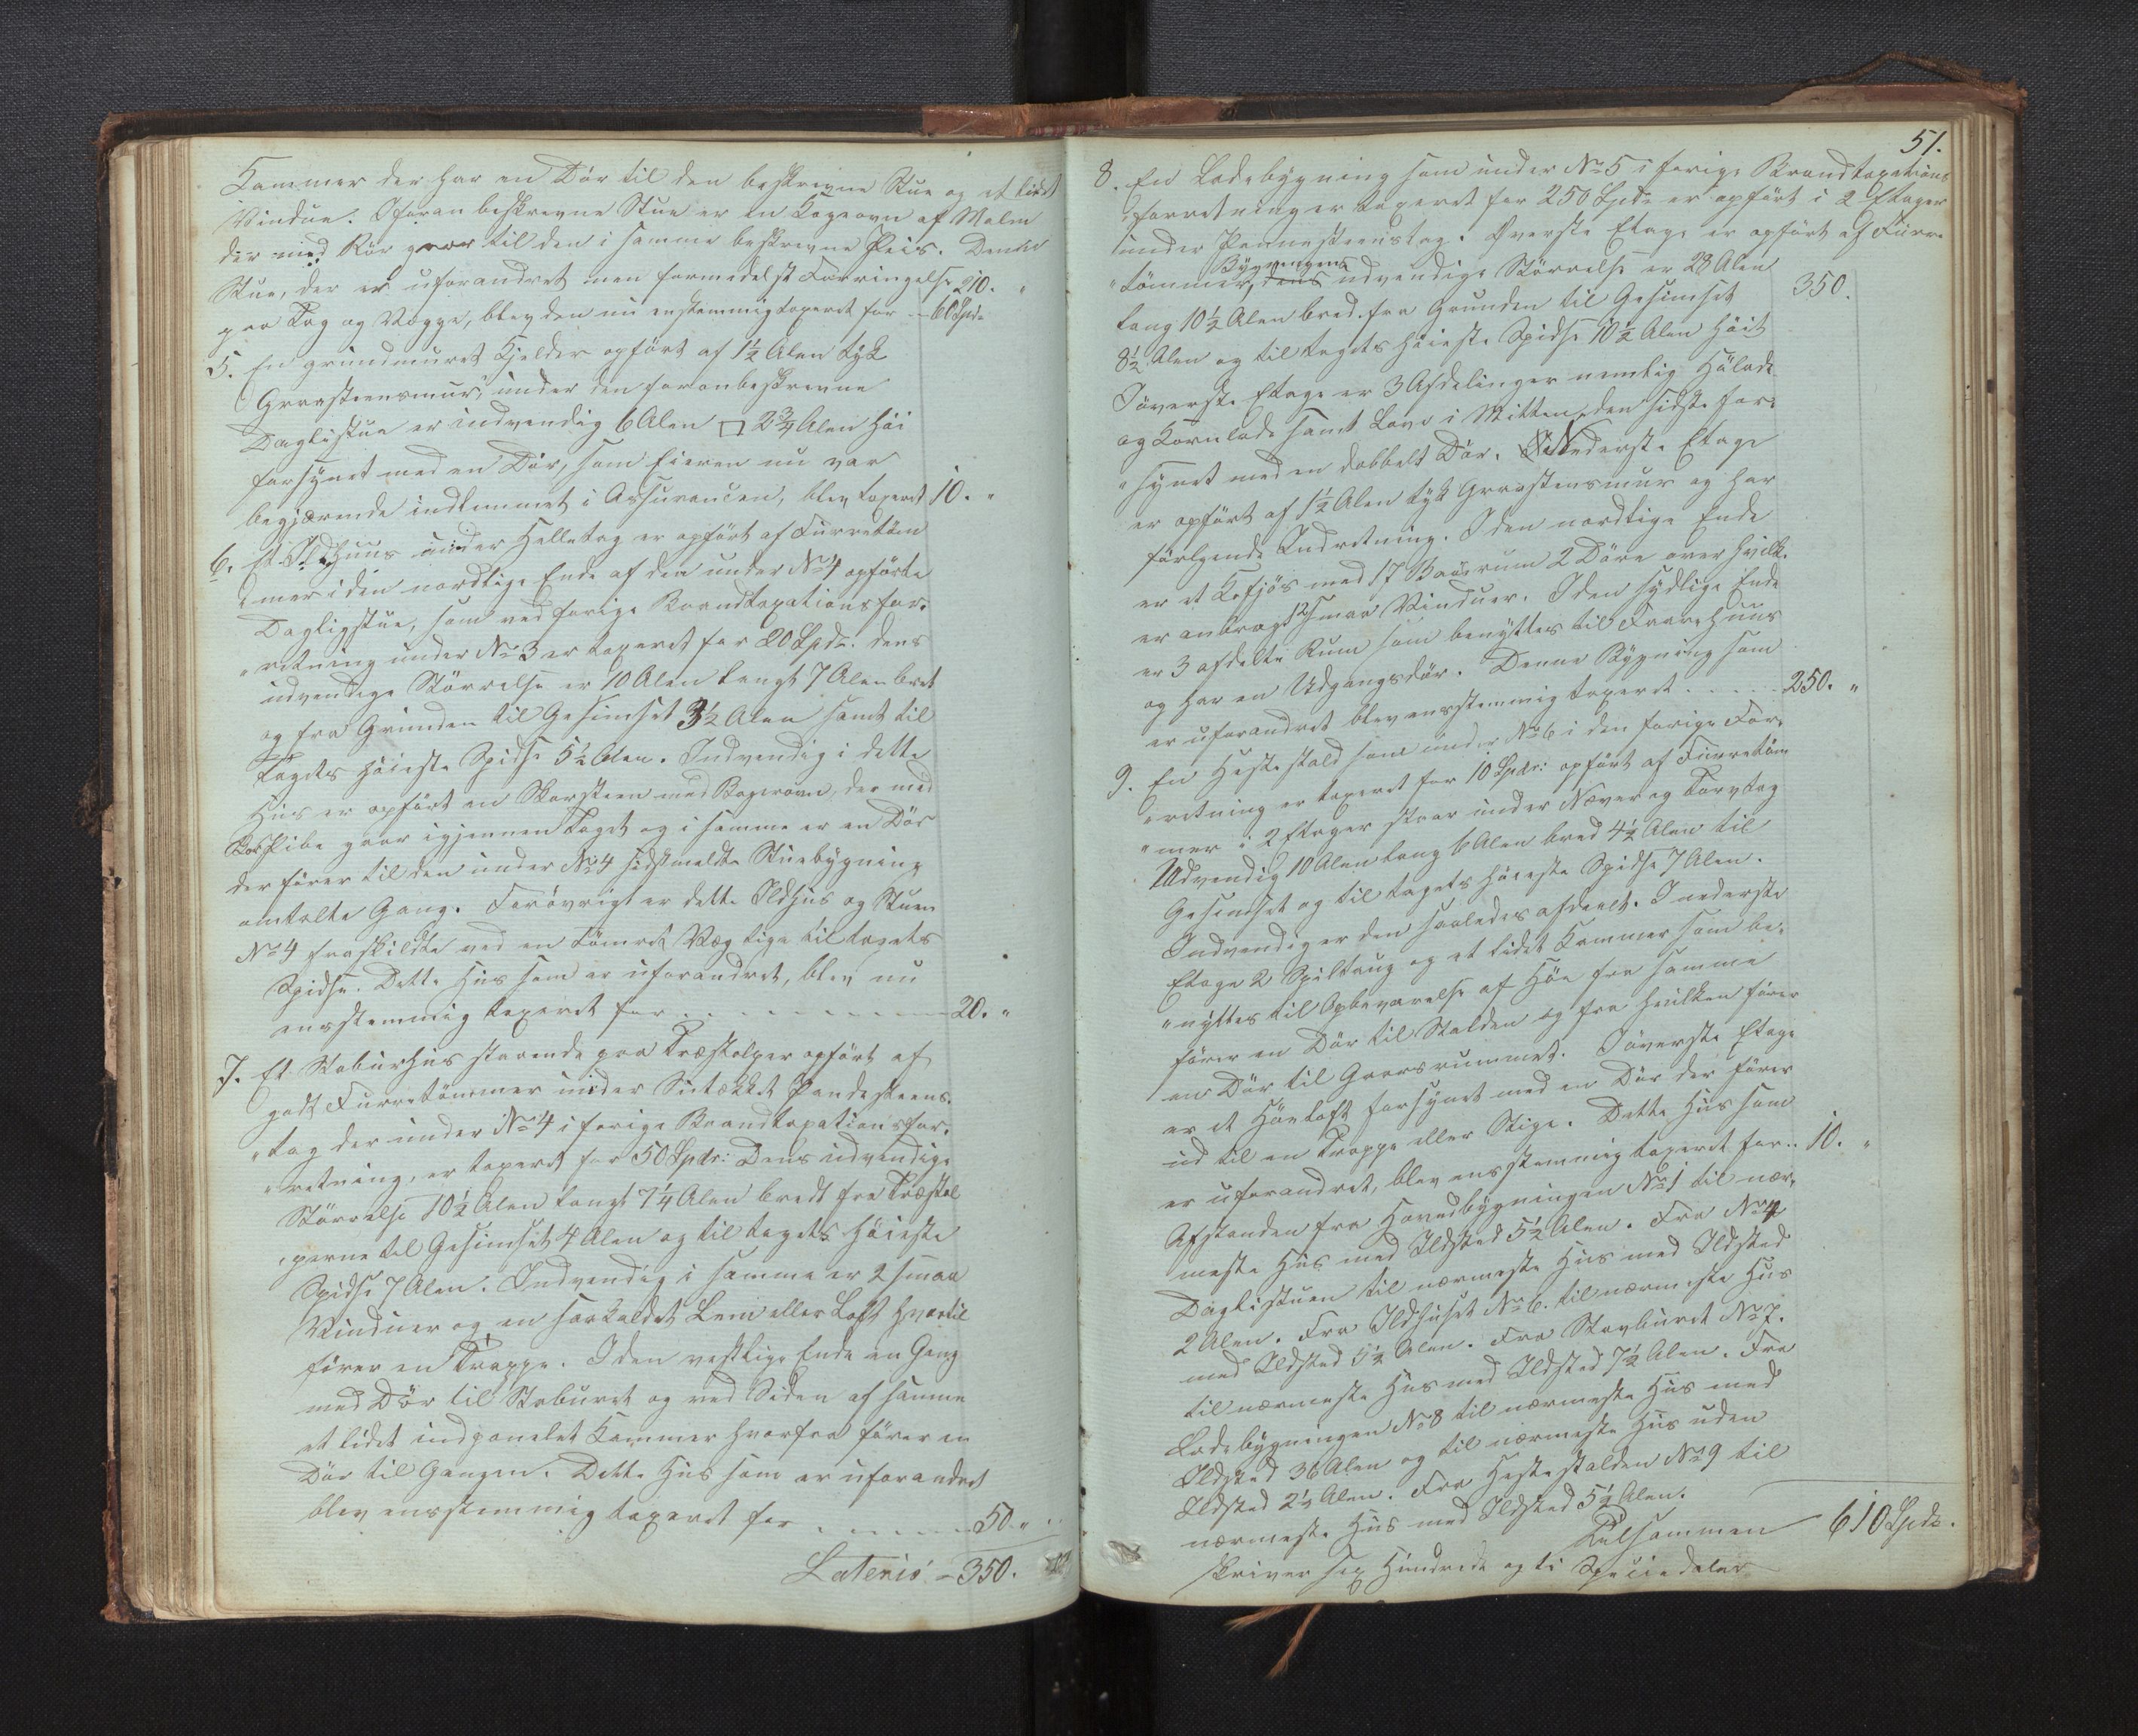 Kammer der har en Dör til den beskrevne Stue og et lidet
Vindue. I foran beskrevne Stue er en Kogeovn af Malm
der med Rör gaar til den i samme beskrevne Peis. Denne
Stue, der er uforandret men formedelst Forringelse 210. "
paa Tag og Vægge, blev den nu enstemmig taxeret for -- 60 Spd
5. En grundmuret Kjelder opfört af 1½ Alen tyk
Graasteensmur, under den foranbeskrevne
Daglistue er indvendig 6 Alen □ 2¾ Alen höi
forsynet med en Dör, som Eieren nu var
begjærende indlemmet i Assurancen, blev taxeret 10. "
6. Et Ildhuus under Helletag er opfört af Furretöm
"mer i den nordlige Ende af den under No 4 opförte
Dagligstue, som ved forige Brandtaxationsfor-
"retning under No 3 er taxeret for 20 Spd. dens
udvendige Störrelse er 10 Alen langt 7 Alen bret
og fra Grunden til Gesimset 3½ Alen samt til
Tagets höieste Spidse 5½ Alen. Indvendig i dette
Hus er opfört en Skorsteen med Bagerovn, der med
Pibe gaar igjennem Taget og i samme er en Dör
der förer til den under No 4 sidstmeldte Stuebygning
omtalte Gang. Forövrigt er dette Ildhus og Stuen
No 4 fraskildte ved en tömret Væg lige til tagets
Spidse. Dette Hus som er uforandret, blev nu
ensstemmig taxeret for - - - - - - - - 20. "
7. Et Staburhus staaende paa Træstolper opfört af
godt Furretömmer under Sutækket Pandesteens-
"tag der under No 4 i forige Brandtaxationsfor-
"retning, er taxeret for 50 Spdr: Dens udvendige
Störrelse 10½ Alen langt 7¼ Alen bredt fra Træstol
"perne til Gesimset 4 Alen og til tagets höieste
Spidse 7 Alen. Indvendig i samme er 2 smaa
Vinduer og en saakaldet Lem eller Loft hvortil
förer en Trappe. I den vestlige Ende en Gang
med Dör til Staburet og ved Siden af samme
et lidet indpanelet Kammer hvorfra förer en
Dör til Gangen. Dette Hus som er uforandret
blev ensstemmig taxeret for - - - - - - 50. "
Lateris - 350.
51.
8. En Ladebygning som under No 5 i forige Brandtaxations
"forretning er taxeret for 250 Spd er opfört i 2 Etager
under Pannesteenstag. Överste Etage er opfört af Furre
Bygningens
"tömmer, dens udvendige Störrelse er 28 Alen 350.
lang 10½ Alen bred. fra Grunden til Gesimset
8½ Alen og til tagets höieste Spidse 10½ Alen höit
I överste Etage er 3 Afdelinger nemlig Hölade
og Kornlade samt Lave i Mitten, den sidste for-
"synet med en dobbelt Dör. Nederste Etage
er opfört af 1½ Alen tyk Graasteensmur og har
fölgende Indretning. I den nordlige Ende
er et Kofjös med 17 Baaserum 2 Döre over hvilk-
er anbragt 12 smaa Vinduer. I den sydlige Ende
er 3 afdelte Rum som benyttes til Faarehuus
og har en Udgangsdör. Denne Bygning som
er uforandret blev ensstemmig taxeret - - - - 250. "
9. En Hestestald som under No 6 i den forige For-
"retning er taxeret for 10 Spdr: opfört af Furretöm
"mer i 2 Etager staar under Næver og Torvtag
Udvendig 10 Alen lang 6 Alen bred 4½ Alen til
Gesimset og til tagets höieste Spidse 7 Alen.
Indvendig er den saaledes afdeelt. I nederste
Etage 2 Spiltaug og et lidet Kammer som be-
"nyttes til Opbevarelse af Höe fra samme
förer en Dör til Stalden og fra hvilken förer
en Dör til Gaarsrummet. I överste Etage
er et Höeloft forsynet med en Dör der förer
ud til en Trappe eller Stige. Dette Hus som
er uforandret, blev ensstemmig taxeret for.. 10. "
Afstanden fra Hovedbygningen No 1 til nær-
meste Hus med Ildsted 5½ Alen. Fra No 4
Daglistuen til nærmeste Hus med Ildsted
2 Alen. Fra Ildhuset No 6. til nærmeste Hus
med Ildsted 5½ Alen. Fra Stavburet No 7.
til nærmeste Hus med Ildsted 7½ Alen. Fra
Ladebygningen No 8 til nærmeste Hus med
Ildsted 36 Alen og til nærmeste Hus uden
Ildsted 2½ Alen. Fra Hestestalden No 9 til
nærmeste Hus med Ildsted 5½ Alen.
Tilsammen 610 Spd.
skriver sex Hundrede og ti Speciedaler